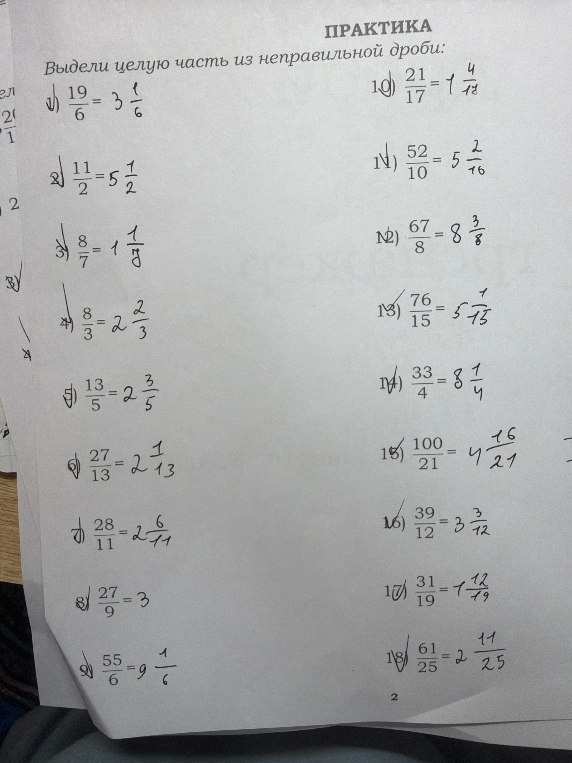 ПРАКТИКА
Выдели целую часть из неправильной дроби:
1) 19/6 = 3 1/6
2) 11/2 = 5 1/2
3) 8/7 = 1 1/7
4) 8/3 = 2 2/3
5) 13/5 = 2 3/5
6) 27/13 = 2 1/13
7) 28/11 = 2 6/11
8) 27/9 = 3
9) 55/6 = 9 1/6
10) 21/17 = 1 4/17
11) 52/10 = 5 2/10
12) 67/8 = 8 3/8
13) 76/15 = 5 1/15
14) 33/4 = 8 1/4
15) 100/21 = 4 16/21
16) 39/12 = 3 3/12
17) 31/19 = 1 12/19
18) 61/25 = 2 11/25
2